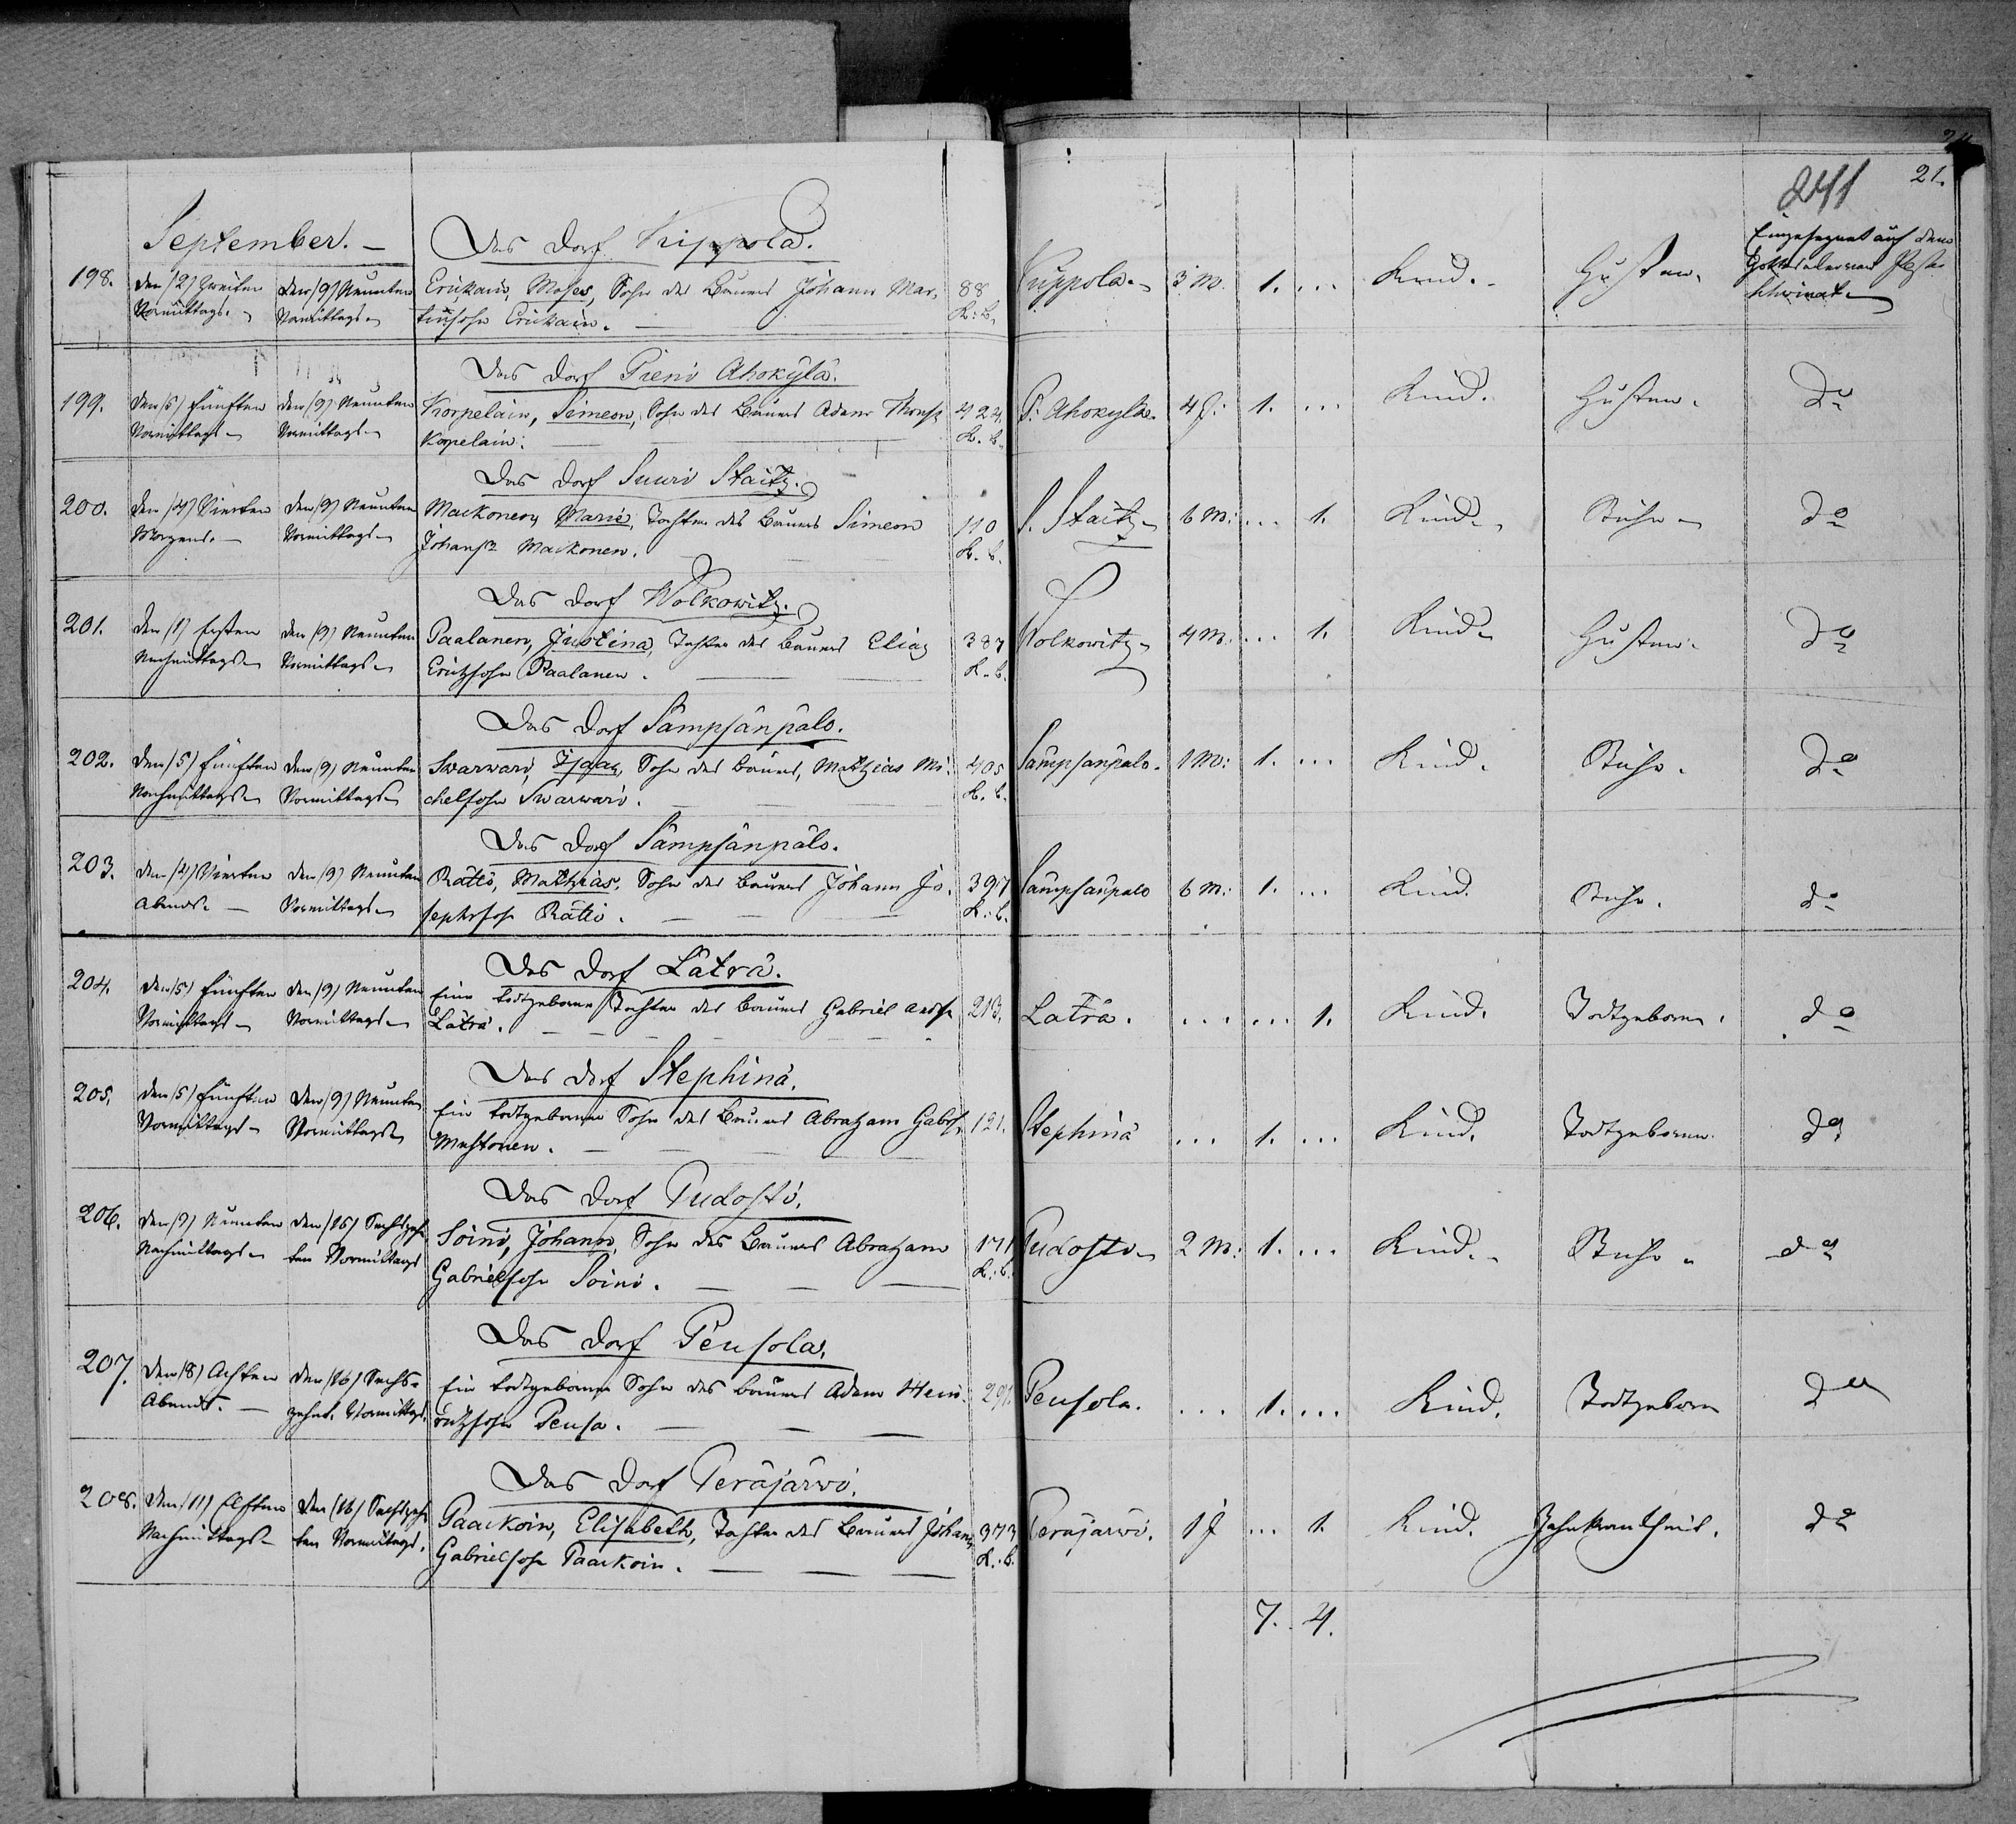 241
21.
September. — Das Dorf Kuppola.
198. den (2) Zweiten den (9) Neunten Erickain, Moses, Sohn des Bauers Johann Mar- 88 Kuppola. 3 M. 1. ... Kind. Husten. Eingesegnet auf dem Gottesacker
Vormittags. Vormittags. tinsohn Erickain. — K. b.
Das Dorf Pieni Ahokylä.
199. den (5) fünften den (9) Neunten Korpelain, Simeon, Sohn des Bauers Adam Thomss. 424. P. Ahokylä. 4 J. 1. ... Kind. Husten. do
Vormittags Vormittags Korpelain. — K. b.
Das Dorf Suuri Staitz.
200. den (4) Vierten den (9) Neunten Maikonen, Marie, Tochter des Bauers Simeon 110 S. Staitz. 6 M. ... 1. Kind. Ruhr do
Morgens. — Vormittags Johanss. Maikonen. — K. b.
Das Dorf Wolkowitz.
201. den (1) Ersten den (9) Neunten Paalanen, Justina, Tochter des Bauers Elias 387 Wolkowitz. 4 M. ... 1. Kind. Husten. do
Nachmittags Vormittags Erichsohn Paalanen. — K. b.
Das Dorf Sämpsänpälo.
202. den (5) fünften den (9) Neunten Swarwari, Isaac, Sohn des Bauers, Mathias Mi- 405 Sämpsänpalo. 1 M. 1. ... Kind. Ruhr. do
Nachmittags Vormittags chelsohn Swarwari. — K. b.
Das Dorf Sämpsänpälo.
203. den (4) Vierten den (9) Neunten Rätti, Mathias, Sohn des Bauers Johann Jo- 397 Sämpsänpalo 6 M. 1. ... Kind. Ruhr. do
Abends. — Vormittags sephssohn Rätti. — K. b.
Das Dorf Läträ.
204. den (5) fünften den (9) Neunten Eine todtgeborne Tochter des Bauers Gabriel Andss. 213. Läträ. ... ... 1. Kind. Todtgeboren. do
Vormittags Vormittags Läträ. —
Das Dorf Stephinä.
205. den (5) fünften den (9) Neunten Ein todtgeborner Sohn des Bauers Abraham Gabrss. 121. Stephinä ... 1. ... Kind. Todtgeboren. do
Vormittags Vormittags Mustonen. —
Das Dorf Pudosti.
206. den (9) Neunten den (16) Sechszehn- Soini, Johann, Sohn des Bauers Abraham 171 Pudosti 2 M. 1. ... Kind. Ruhr do
Nachmittags ten Vormittags Gabrielsohn Soini. — K. b.
Das Dorf Peusola.
207. den (8) Achten den (16) Sechs- Ein todtgeborner Sohn des Bauers Adam Hein- 291. Peusola. ... 1. ... Kind. Todtgeboren do
Abends. — zehnt. Vormittags. richsohn Peusa. —
Das Dorf Peräjärwi.
208. den (11) Elften den (16) Sechszehn- Paarkoin, Elisabeth, Tochter des Bauers Johann 373 Peräjärwi. 1 J ... 1. Kind. Zahnkrankheit. do
Nachmittags ten Vormittags. Gabrielsohn Paarkoin. — K. b.
7. 4.